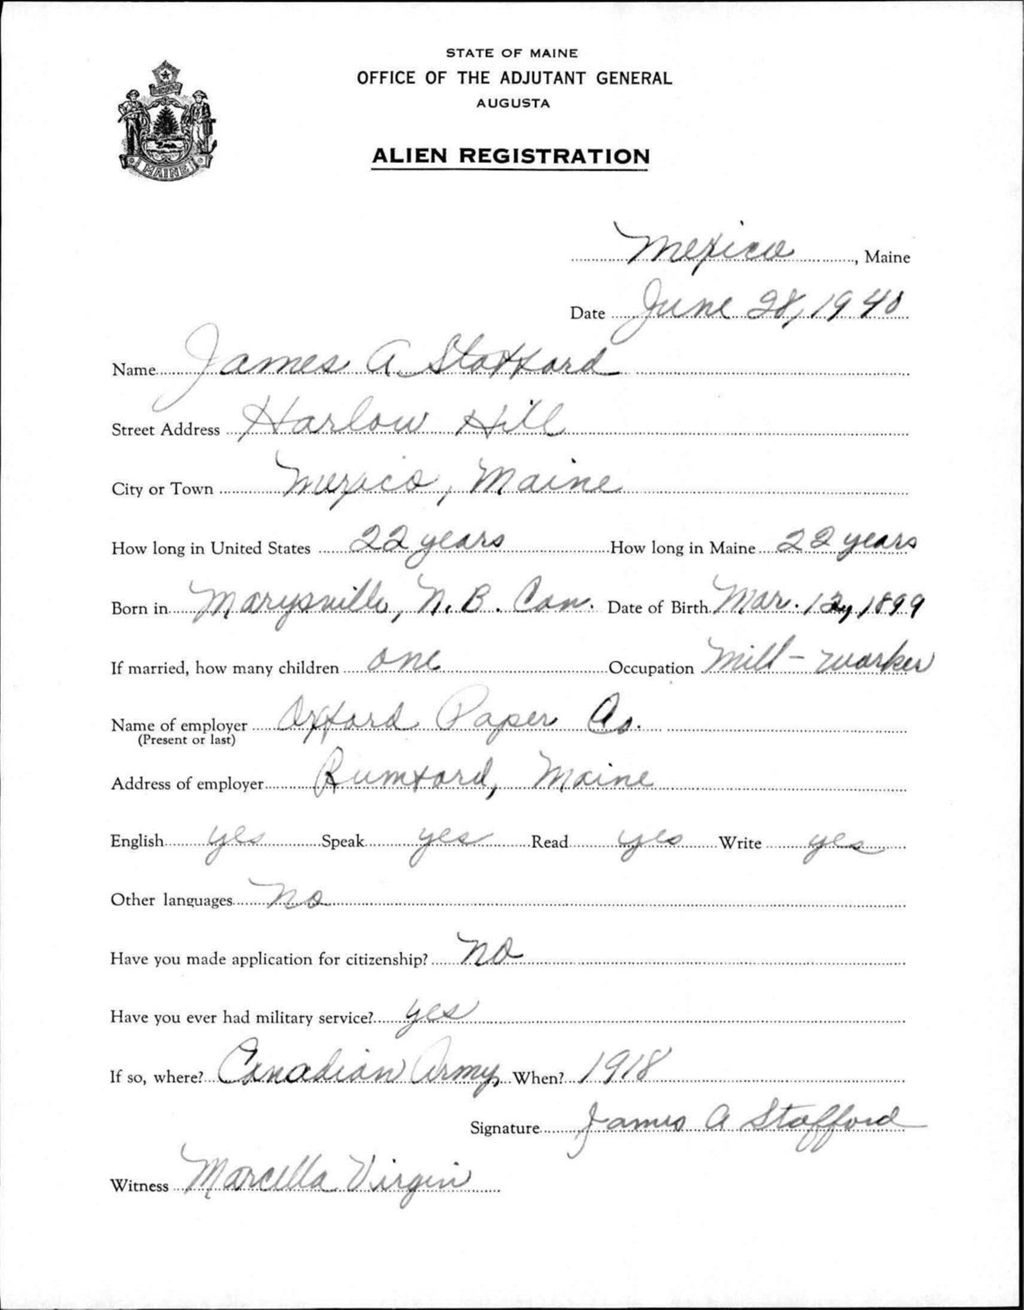 STATE OF MAINE
OFFICE OF THE ADJUTANT GENERAL
AUGUSTA
ALIEN REGISTRATION
MAINE
Mexico, Maine
Date June 28, 1940
Name James A. Stafford
Street Address Harlow Hill
City or Town Mexico, Maine
How long in United States 22 years How long in Maine 22 years
Born in Marysville, N. B. Can. Date of Birth Mar. 12, 1899
If married, how many children one Occupation Mill-worker
Name of employer Oxford Paper Co.
(Present or last)
Address of employer Rumford, Maine
English yes Speak yes Read yes Write yes
Other languages no
Have you made application for citizenship? no
Have you ever had military service? yes
If so, where? Canadian Army When? 1918
Signature James A Stafford
Witness Marcella Virgin